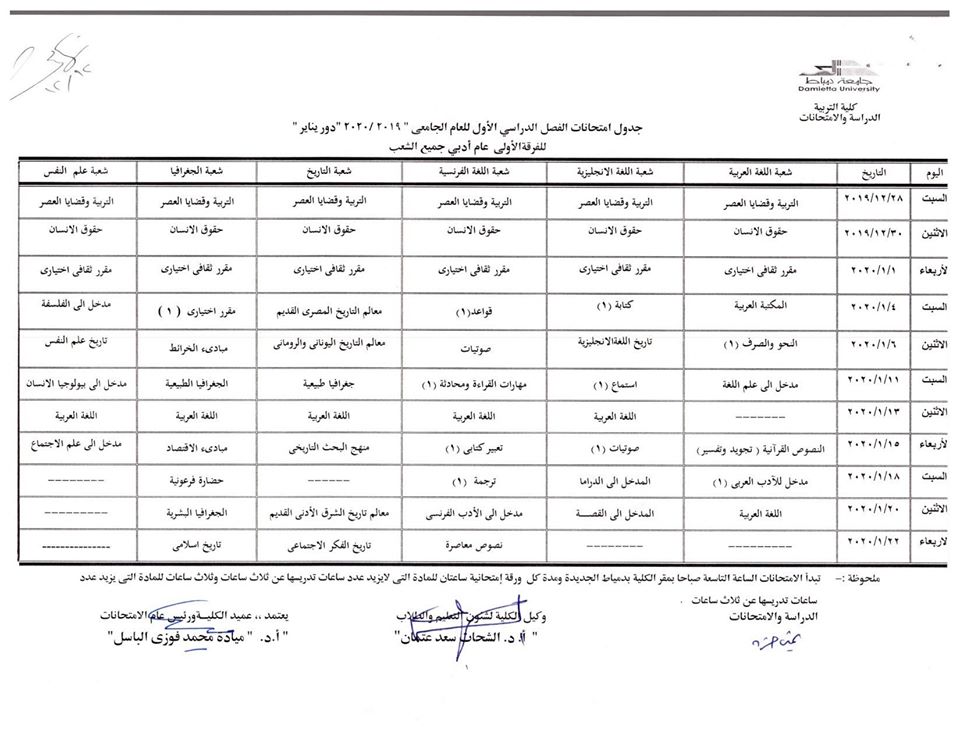 جامعة دمياط
Damietta University
كلية التربية
الدراسة والامتحانات
جدول امتحانات الفصل الدراسي الأول للعام الجامعى " ٢٠١٩ /٢٠٢٠ "دور يناير "
للفرقة الأولى عام أدبي جميع الشعب
اليوم التاريخ شعبة اللغة العربية شعبة اللغة الانجليزية شعبة اللغة الفرنسية شعبة التاريخ شعبة الجغرافيا شعبة علم النفس
السبت ٢٠١٩/١٢/٢٨ التربية وقضايا العصر التربية وقضايا العصر التربية وقضايا العصر التربية وقضايا العصر التربية وقضايا العصر التربية وقضايا العصر
الاثنين ٢٠١٩/١٢/٣٠ حقوق الانسان حقوق الانسان حقوق الانسان حقوق الانسان حقوق الانسان حقوق الانسان
لأربعاء ٢٠٢٠/١/١ مقرر ثقافى اختيارى مقرر ثقافى اختيارى مقرر ثقافى اختيارى مقرر ثقافى اختيارى مقرر ثقافى اختيارى مقرر ثقافى اختيارى
السبت ٢٠٢٠/١/٤ المكتبة العربية كتابة (١) قواعد(١) معالم التاريخ المصرى القديم مقرر اختيارى ( ١ ) مدخل الى الفلسفة
الاثنين ٢٠٢٠/١/٦ النحو والصرف (١) تاريخ اللغةالانجليزية صوتيات معالم التاريخ اليونانى والرومانى مبادىء الخرائط تاريخ علم النفس
السبت ٢٠٢٠/١/١١ مدخل الى علم اللغة استماع (١) مهارات القراءة ومحادثة (١) جغرافيا طبيعية الجغرافيا الطبيعية مدخل الى بيولوجيا الانسان
الاثنين ٢٠٢٠/١/١٣ ------- اللغة العربية اللغة العربية اللغة العربية اللغة العربية اللغة العربية
لأربعاء ٢٠٢٠/١/١٥ النصوص القرآنية ( تجويد وتفسير) صوتيات (١) تعبير كتابى (١) منهج البحث التاريخى مبادىء الاقتصاد مدخل الى علم الاجتماع
السبت ٢٠٢٠/١/١٨ مدخل للأدب العربى (١) المدخل الى الدراما ترجمة (١) ------ حضارة فرعونية --------
الاثنين ٢٠٢٠/١/٢٠ اللغة العربية المدخل الى القصة مدخل الى الأدب الفرنسى معالم تاريخ الشرق الأدنى القديم الجغرافيا البشرية ---------
لاربعاء ٢٠٢٠/١/٢٢ --------- -------- نصوص معاصرة تاريخ الفكر الاجتماعى تاريخ اسلامى ---------------
ملحوظة :- تبدأ الامتحانات الساعة التاسعة صباحا بمقر الكلية بدمياط الجديدة ومدة كل ورقة إمتحانية ساعتان للمادة التى لايزيد عدد ساعات تدريسها عن ثلاث ساعات وثلاث ساعات للمادة التى يزيد عدد
ساعات تدريسها عن ثلاث ساعات .
الدراسة والامتحانات وكيل الكلية لشئون التعليم والطلاب يعتمد ،، عميد الكلية ورئيس عام الامتحانات
" أ.د. الشحات سعد عتمان " "أ.د. " ميادة محمد فوزى الباسل "
١